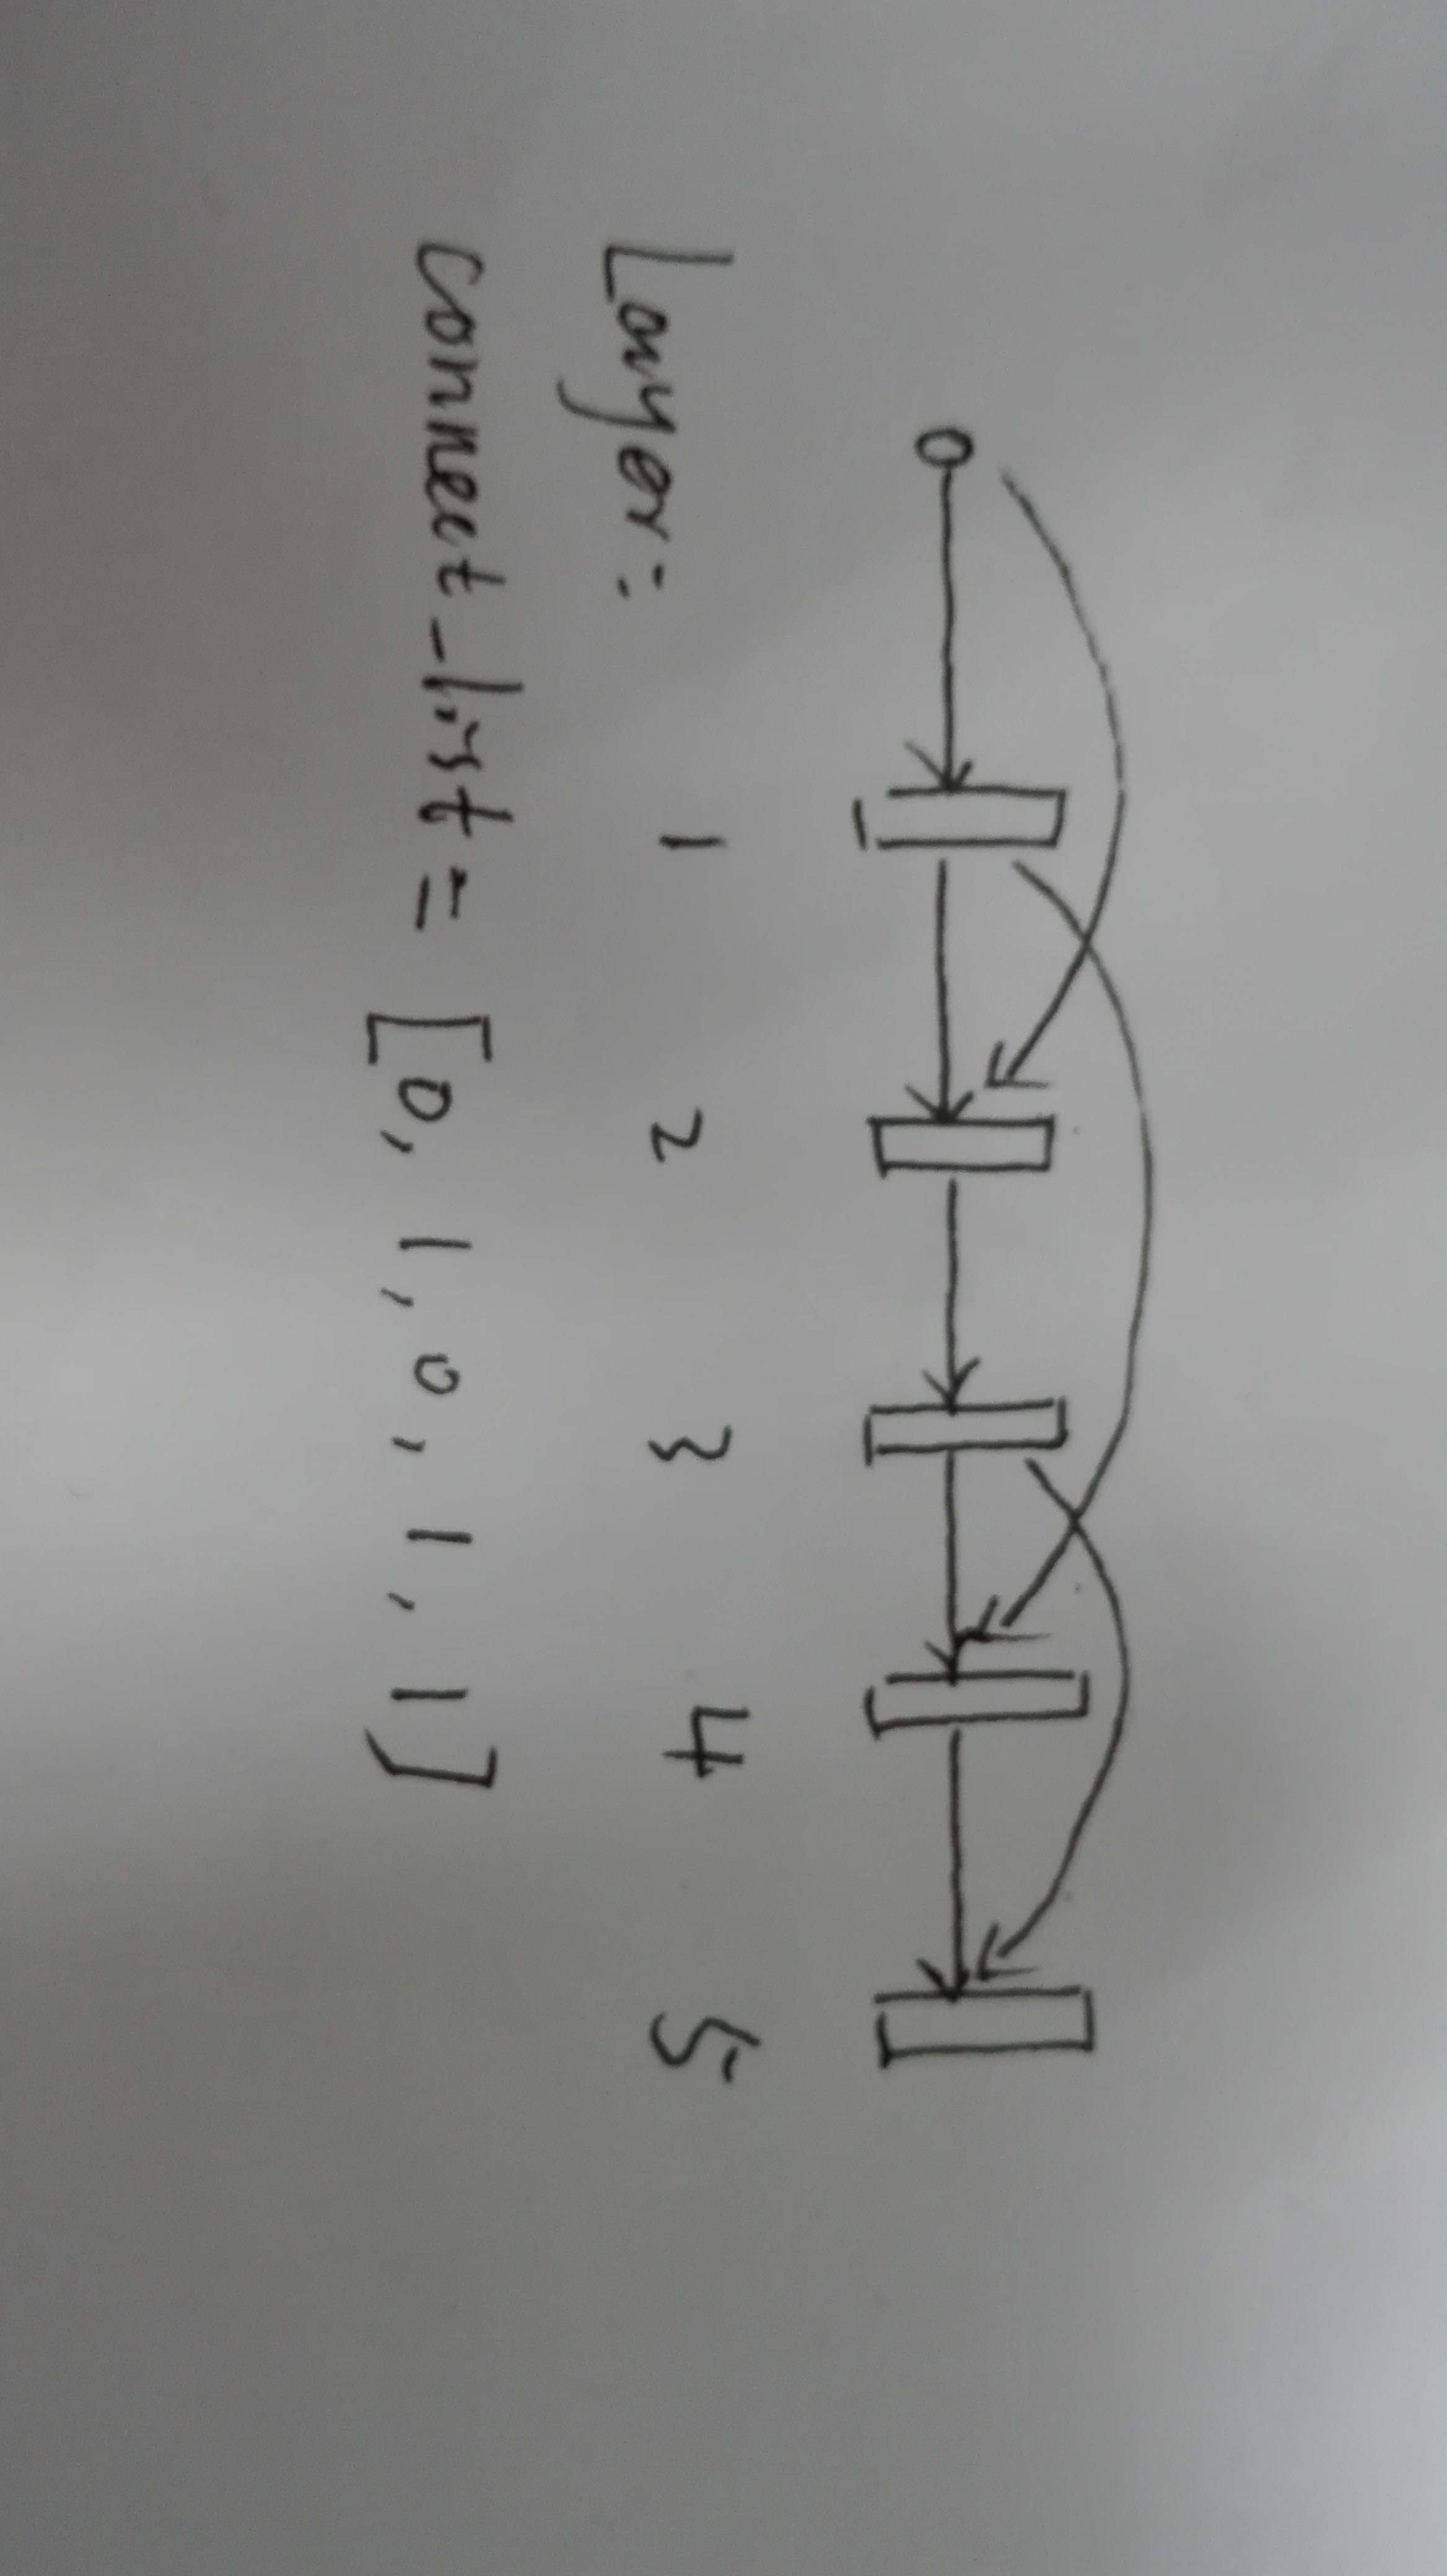 Layer: 1 2 3 4 5
connect-list = [0, 1, 0, 1, 1]